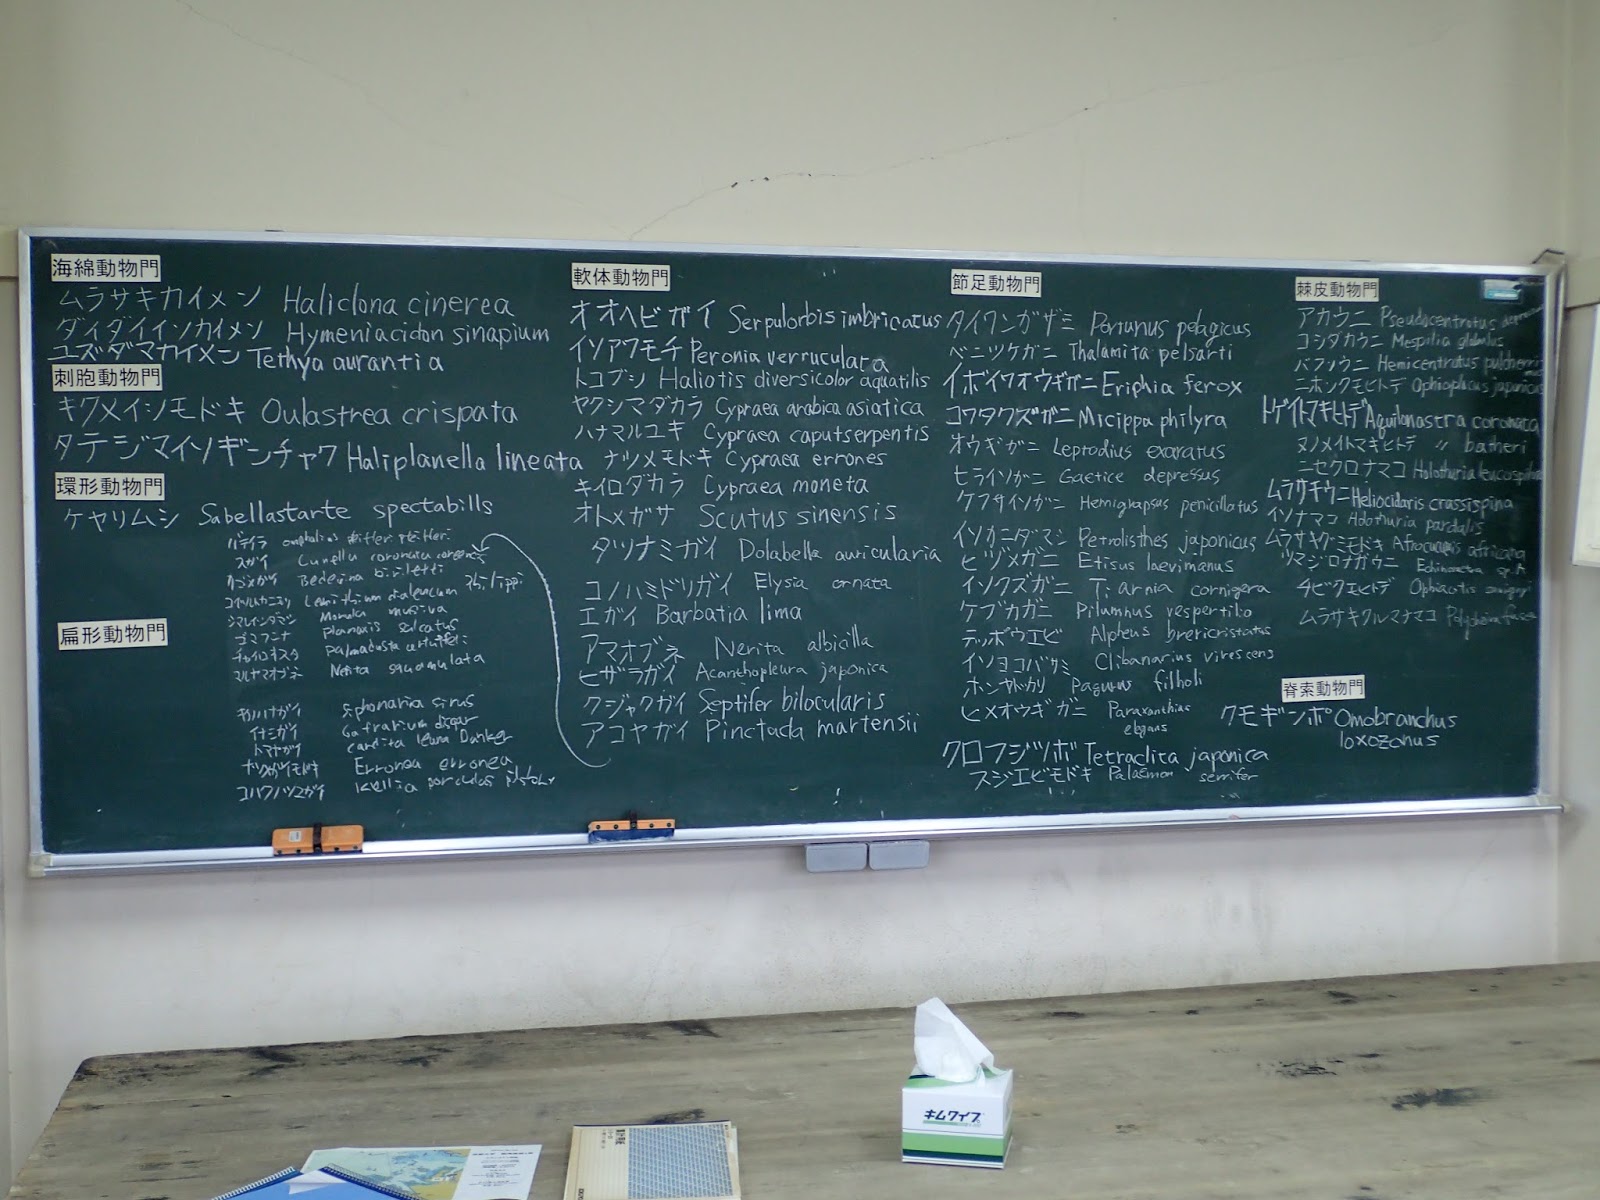 海綿動物門
ムラサキカイメン Haliclona cinerea
ダイダイイソカイメン Hymeniacidon sinapium
ユズダマカイメン Tethya aurantia
刺胞動物門
キクメイシモドキ Oulastrea crispata
タテジマイソギンチャク Haliplanella lineata
環形動物門
ケヤリムシ Sabellastarte spectabills
バテイラ omphalius
スガイ Lunella coronata
Bederina birileffi
シマレイシダマシ Morula musiva
ゴマフニナ Planaxis sulcatus
チャイロキヌタ Palmadusta
マルアマオブネ Nerita squamulata
扁形動物門
キクノハナガイ Siphonaria sirus
イナミガイ Gafrarium dispar
トマヤガイ cardita leana Dunker
ナツメガイモドキ Erronea erronea
コハクノツユガイ Kellia porculus
軟体動物門
オオヘビガイ Serpulorbis imbricatus
イソアワモチ Peronia verruculata
トコブシ Haliotis diversicolor aquatilis
ヤクシマダカラ Cypraea arabica asiatica
ハナマルユキ Cypraea caputserpentis
ナツメモドキ Cypraea errones
キイロダカラ Cypraea moneta
オトメガサ Scutus sinensis
タツナミガイ Dolabella auricularia
コノハミドリガイ Elysia ornata
エガイ Barbatia lima
アマオブネ Nerita albicilla
ヒザラガイ Acanthopleura japonica
クジャクガイ Septifer bilocularis
アコヤガイ Pinctada martensii
節足動物門
タイワンガザミ Portunus pelagicus
ベニツケガニ Thalamita pelsarti
イボイワオウギガニ Eriphia ferox
コワタクズガニ Micippa philyra
オウギガニ Leptodius exaratus
ヒライソガニ Gaetice depressus
ケフサイソガニ Hemigrapsus penicillatus
イソカニダマシ Petrolisthes japonicus
ヒヅメガニ Etisus laevimanus
イソクズガニ Tiarnia cornigera
ケブカガニ Pilumnus vespertilio
テッポウエビ Alpheus brericristatus
イソヨコバサミ Clibanarius virescens
ホンヤドカリ Pagurus filholi
ヒメオウギガニ Paraxanthias
elegans
クロフジツボ Tetraclita japonica
スジエビモドキ Palaemon serrifer
棘皮動物門
アカウニ Pseudocentrotus
コシダカウニ Mespilia globulus
バフンウニ Hemicentrotus pulcherri
ニホンクモヒトデ Ophioplocus japonicus
トゲイトマキヒトデ Aquilonastra coronata
ヌノメイトマキヒトデ 〃 batheri
ニセクロナマコ Holothuria leucospilota
ムラサキウニ Heliocidaris crassispina
イソナマコ Holothuria pardalis
ムラサキグミモドキ Afrocucumis africana
ツマジロナガウニ Echinometra sp.A
チビクモヒトデ Ophiactis
ムラサキクルマナマコ Polycheira
脊索動物門
クモギンポ Omobranchus
loxozonus
キムワイプ